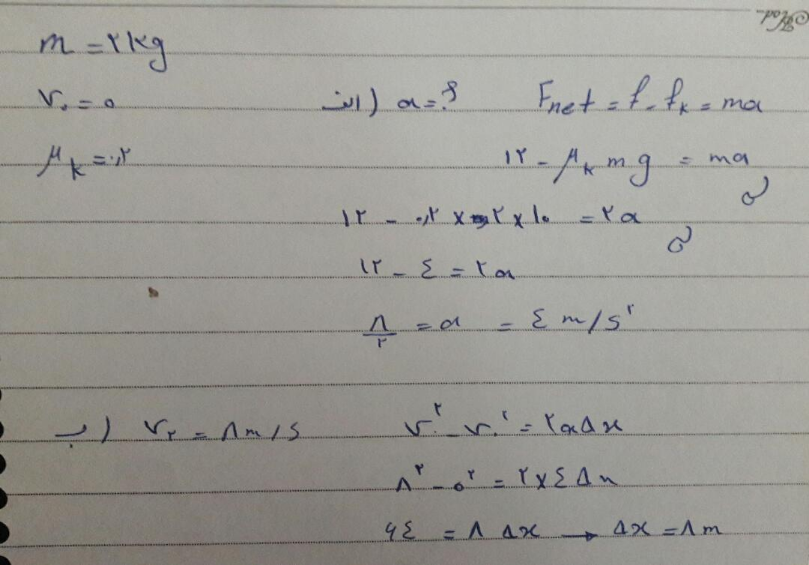 m = ۲kg
v₀ = ۰ الف) a = ؟ Fnet = f - fk = ma
μk = ۰,۲ ۱۲ - μk mg = ma
۱۲ - ۰,۲ × ۲ × ۱۰ = ۲a
۱۲ - ٤ = ۲a
۸/۲ = a = ٤ m/s²
ب) v₂ = ۸m/s v² - v₀² = ۲aΔx
۸² - ۰² = ۲×٤ Δx
۶٤ = ۸ Δx → Δx = ۸m